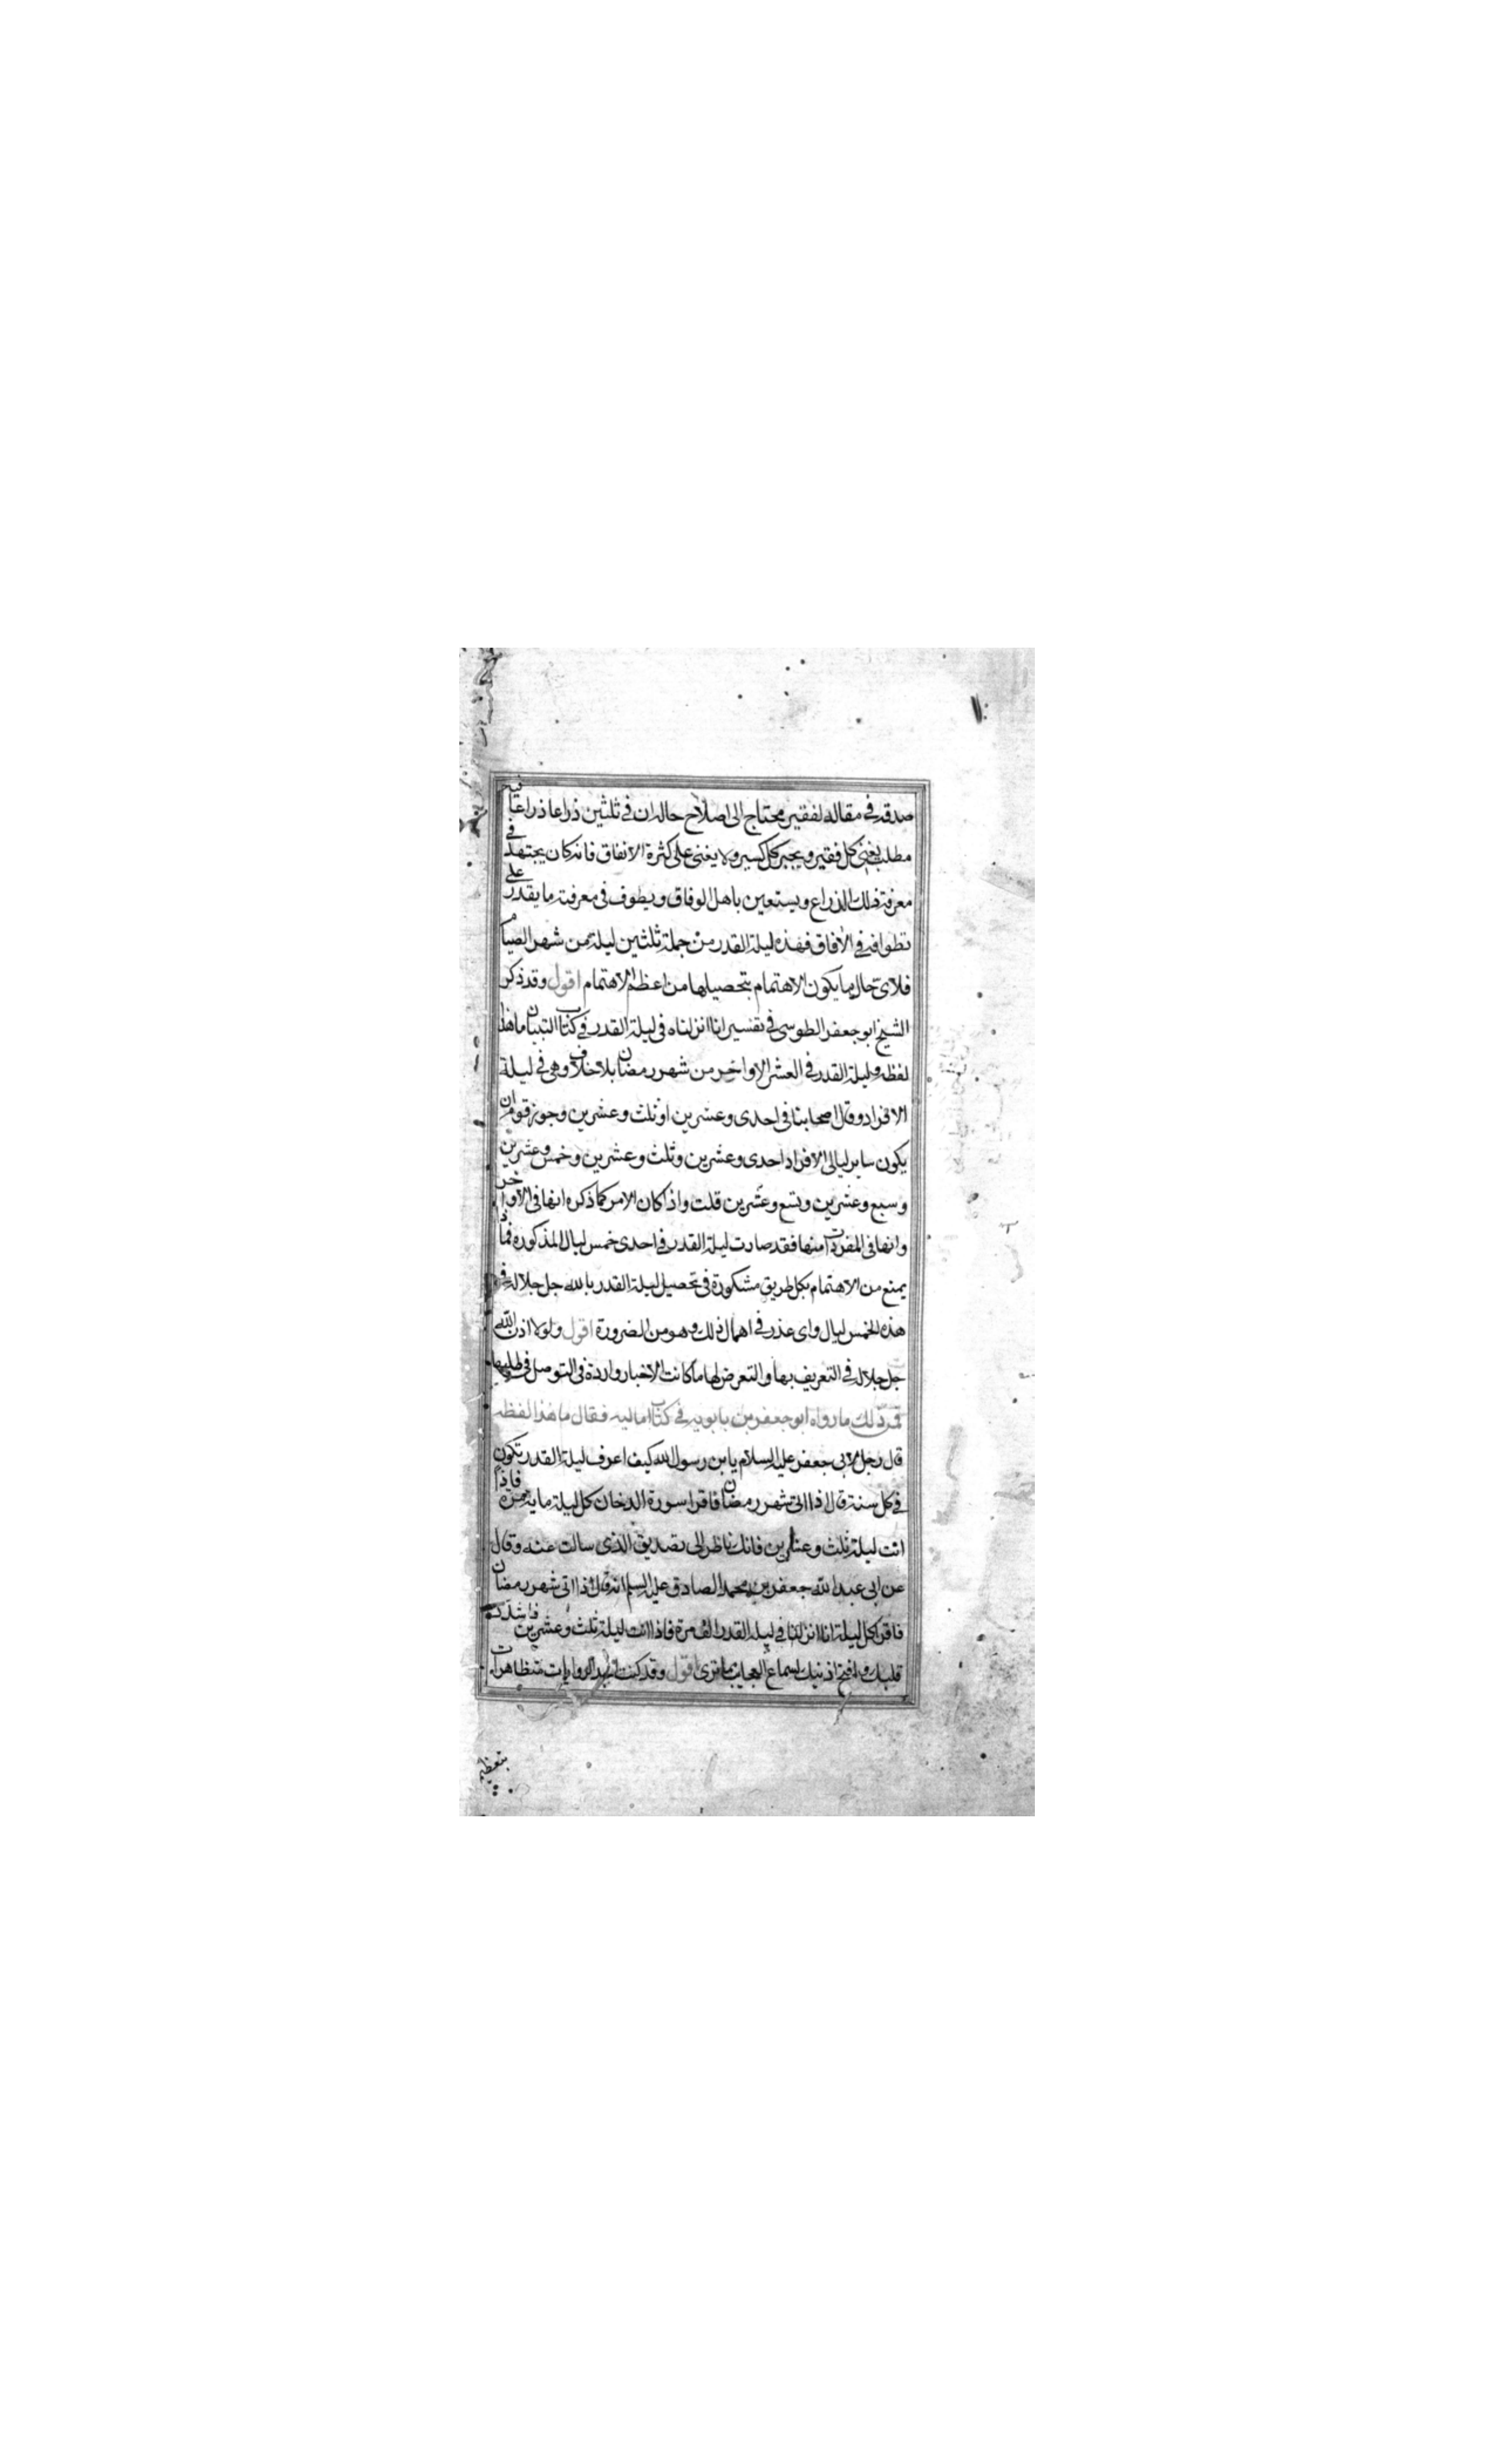 صدقه في مقاله لفقير محتاج الى اصلاح حاله ان في ثلثين ذراعا ذراعا فيه
مطلب يغني كل فقير ويجبر كل كسير ولا يغنى على كثرة الانفاق فانه كان يجتهد في
معرفة ذلك الذراع ويستعين باهل الوفاق ويطوف في معرفته ما يقدر على
تطوافه في الآفاق فهذه ليلة القدر من جملة ثلثين ليلة من شهر الصيام
فلاى حال ما يكون الاهتمام بتحصيلها من اعظم الاهتمام اقول وقد ذكر
الشيخ ابو جعفر الطوسى في تفسير انا انزلناه فى ليلة القدر في كتاب التبيان ما هذا
لفظه وليلة القدر في العشر الاواخر من شهر رمضان بلا خلاف وهى في ليلة
الافراد وقال اصحابنا في احدى وعشرين او ثلث وعشرين وجوز قوم ان
يكون ساير ليالى الافراد احدى وعشرين وثلث وعشرين وخمس وعشرين
وسبع وعشرين وتسع وعشرين قلت واذا كان الامر كما ذكره انها فى الاواخر
وانها فى المفردات منها فقد صارت ليلة القدر في احدى خمس ليال المذكوره فماذا
يمنع من الاهتمام بكل طريق مشكورة فى تحصيل ليلة القدر بالله جل جلاله في
هذه الخمس ليال واى عذر في اهمال ذلك وهو من الضرورة اقول ولولا اذن الله
جل جلاله في التعريف بها والتعرض لها ما كانت الاخبار واردة فى التوصل في طلبها
فمن ذلك ما رواه ابو جعفر بن بابويه في كتاب اماليه فقال ما هذا لفظه
قال رجل لابى جعفر عليه السلام يا بن رسول الله كيف اعرف ليلة القدر تكون
في كل سنة قال اذا اتى شهر رمضان فاقرا سورة الدخان كل ليلة ماية مرة فاذا
اتت ليلة ثلث وعشرين فانك ناظر الى تصديق الذى سالت عنه وقال
عن ابى عبد الله جعفر بن محمد الصادق عليه السلم انه قال اذا اتى شهر رمضان
فاقرا كل ليلة انا انزلنا في ليلة القدر الف مرة فاذا اتت ليلة ثلث وعشرين فاشدد
قلبك وافتح اذنيك لسماع العجايب مما ترى اقول وقد كنت اجد الروايات متظاهرات
بتعظيم